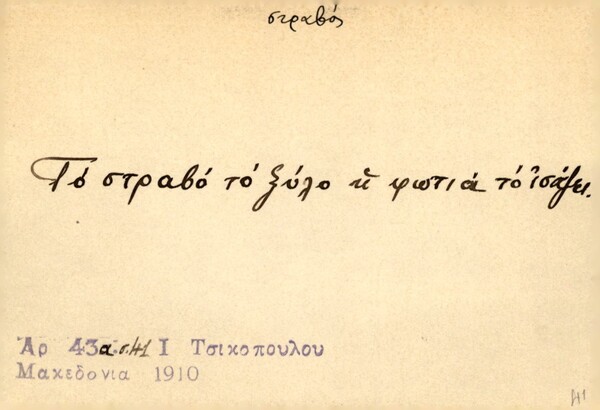 στραβός
Τό στραβό τό ξύλο ἡ φωτιά τό ἰσάζει.
Αρ 43α σ.41 Ι Τσικοπουλου
Μακεδονια 1910
41